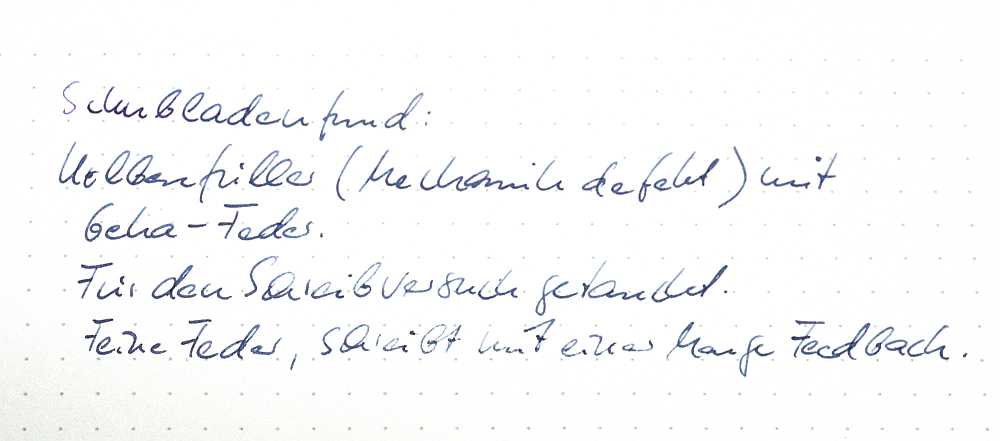 Schubladenfund:
Kolbenfüller (Mechanik defekt) mit
Geha-Feder.
Für den Schreibversuch getaucht.
Feine Feder, schreibt mit einer Menge Feedback.